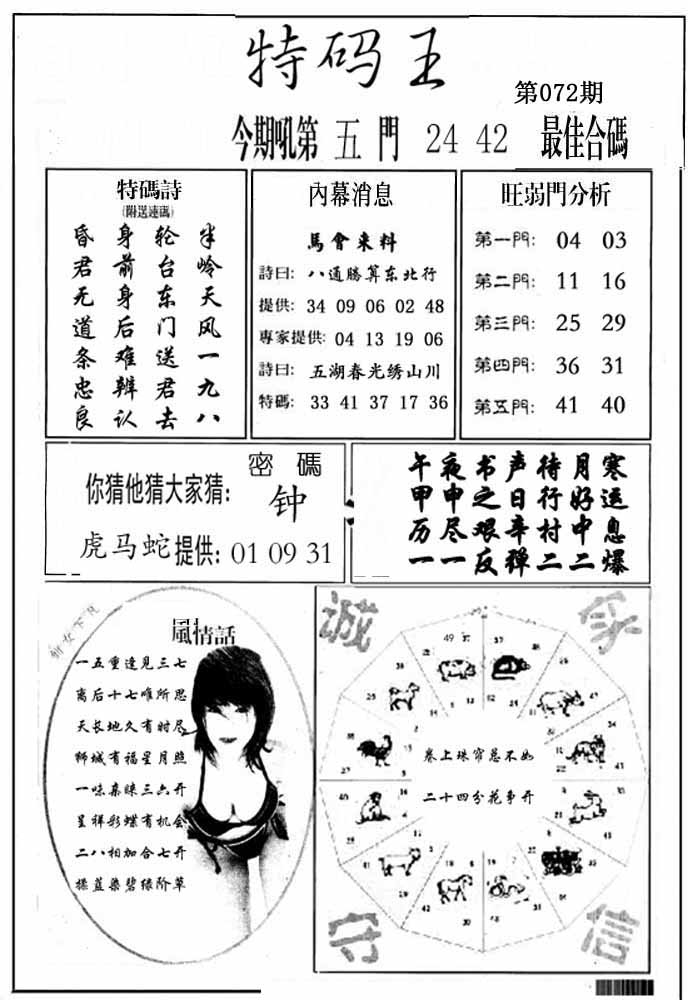 特码王
第072期
今期吼第 五 門 24 42 最佳合碼
特碼詩
(附送連碼)
半岭天风一九八
轮台东门送君去
身前身后难辨认
昏君无道条忠良
內幕消息
馬會来料
詩曰: 八通勝算东北行
提供: 34 09 06 02 48
專家提供: 04 13 19 06
詩曰: 五湖春光绣山川
特碼: 33 41 37 17 36
旺弱門分析
第一門: 04 03
第二門: 11 16
第三門: 25 29
第四門: 36 31
第五門: 41 40
密碼
你猜他猜大家猜: 钟
虎马蛇提供: 01 09 31
寒运息爆
月好中二
待行村二
声日辛禅
书之艰反
夜申尽一
午甲历一
女下凡
風情話
一五重逢见三七
离后十七唯所思
天长地久有时尽
狮城有福星月照
一味亲睐三六开
呈祥彩蝶有机会
二八相加合七开
揉蓝染碧绿阶草
诚
守
信
卷上珠帘总不如
二十四分花事开
49 37